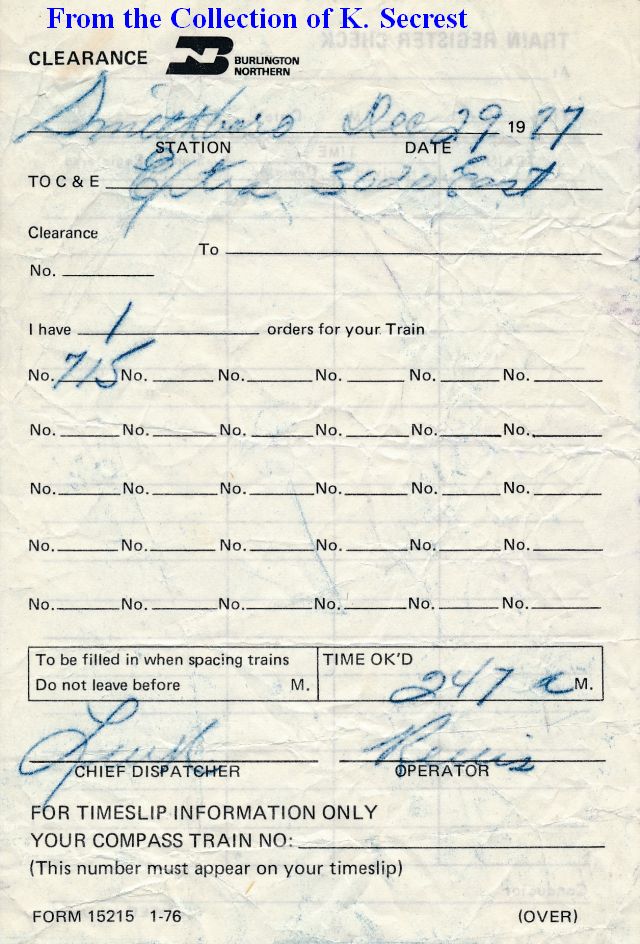 From the Collection of K. Secrest
CLEARANCE BN BURLINGTON NORTHERN
Smithboro Dec 29 1977
STATION DATE
TO C & E Extra 3020 East
Clearance
To
No.
I have 1 orders for your Train
No. 715 No. No. No. No. No.
No. No. No. No. No. No.
No. No. No. No. No. No.
No. No. No. No. No. No.
No. No. No. No. No. No.
To be filled in when spacing trains TIME OK'D
Do not leave before M. 247 a M.
CHIEF DISPATCHER OPERATOR
FOR TIMESLIP INFORMATION ONLY
YOUR COMPASS TRAIN NO:
(This number must appear on your timeslip)
FORM 15215 1-76 (OVER)